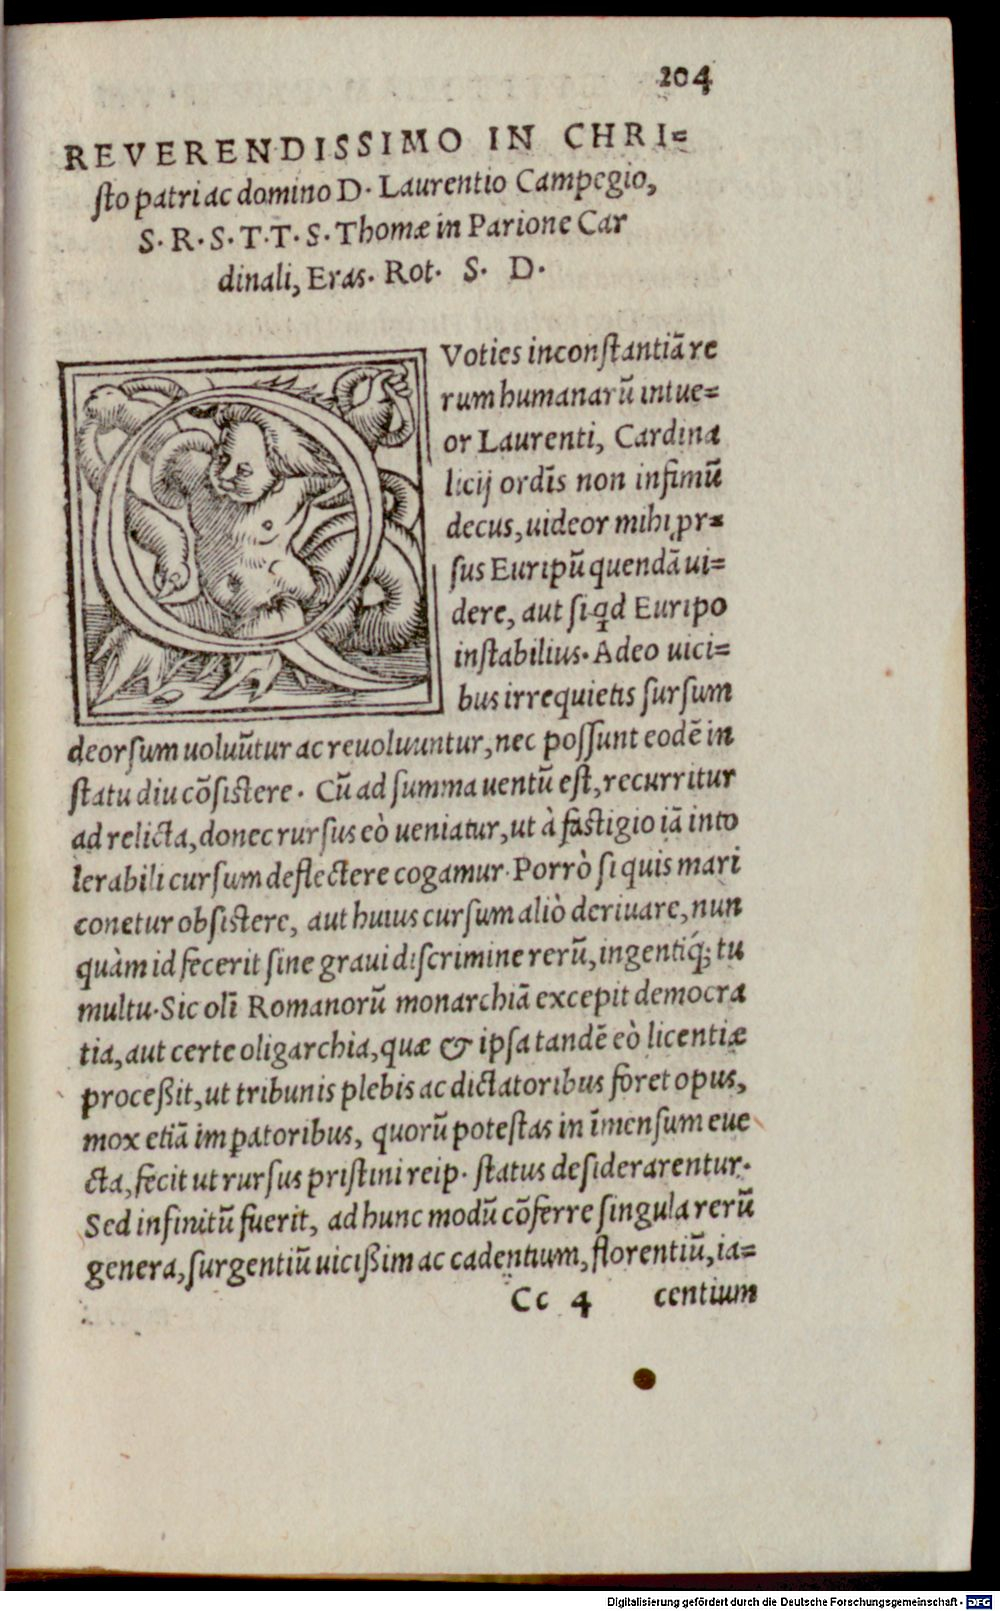 204
REVERENDISSIMO IN CHRI=
sto patri ac domino D. Laurentio Campegio,
S. R. S. T. T. S. Thomæ in Parione Car
dinali, Eras. Rot. S. D.
QVoties inconstantiã re
rum humanarũ intue=
or Laurenti, Cardina
licij ordĩs non infimũ
decus, uideor mihi ꝓr=
sus Euripũ quendã ui=
dere, aut si qd Euripo
instabilius. Adeo uici=
bus irrequietis sursum
deorsum uoluũtur ac reuoluuntur, nec possunt eodẽ in
statu diu cõsistere. Cũ ad summa uentũ est, recurritur
ad relicta, donec rursus eò ueniatur, ut à fastigio iã into
lerabili cursum deflectere cogamur. Porrò si quis mari
conetur obsistere, aut huius cursum aliò deriuare, nun
quàm id fecerit sine graui discrimine rerũ, ingentiq́; tu
multu. Sic olĩ Romanorũ monarchiã excepit democra
tia, aut certe oligarchia, quæ & ipsa tandẽ eò licentiæ
proceßit, ut tribunis plebis ac dictatoribus foret opus,
mox etiã impatoribus, quorũ potestas in ĩmensum eue
cta, fecit ut rursus pristini reip. status desiderarentur.
Sed infinitũ fuerit, ad hunc modũ cõferre singula rerũ
genera, surgentiũ uicißim ac cadentium, florentiũ, ia=
Cc 4 centium
Digitalisierung gefördert durch die Deutsche Forschungsgemeinschaft - DFG